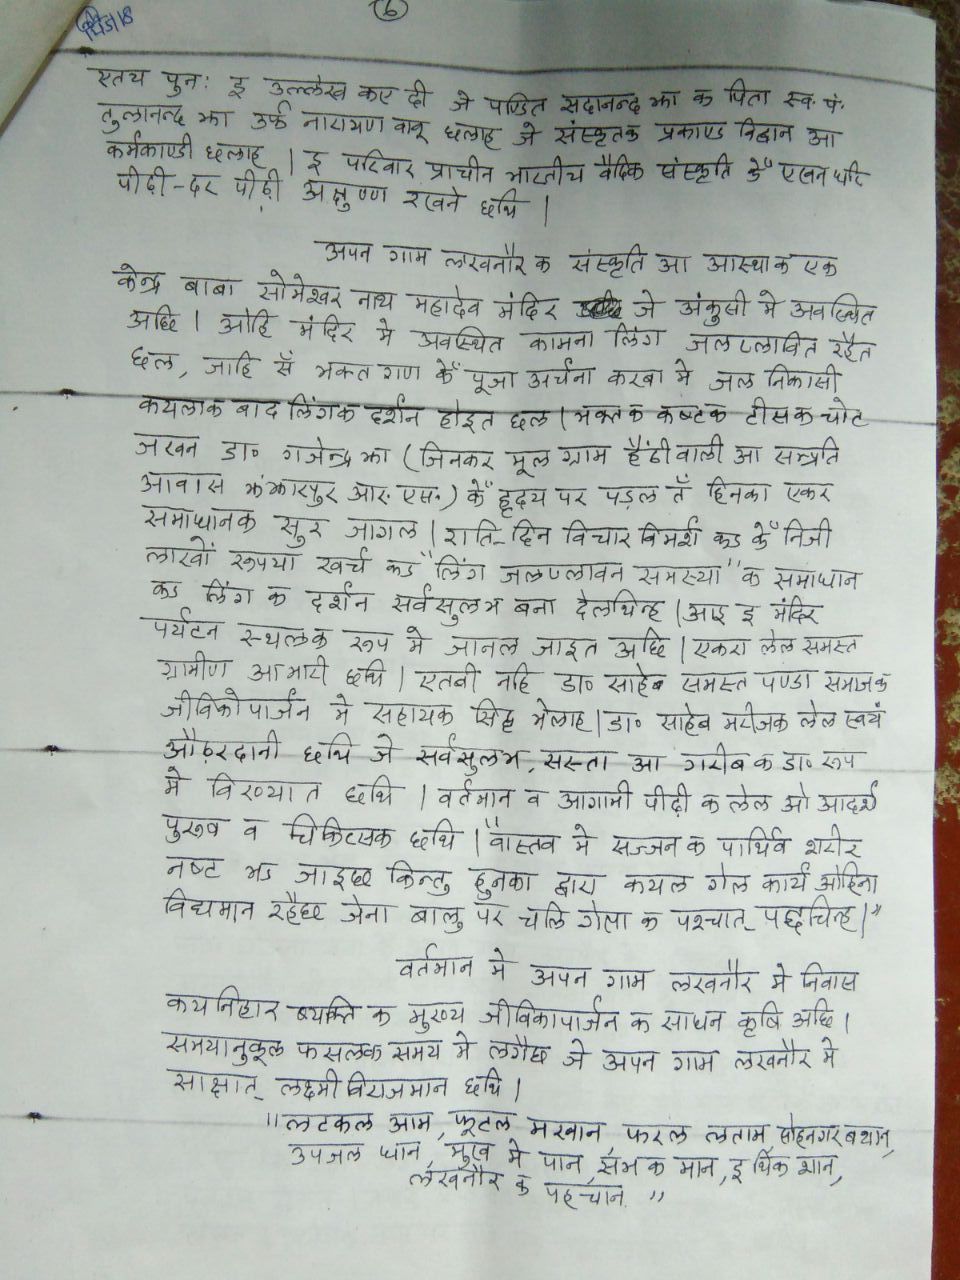 6
एतय पुन: इ उल्लेख कए दी जे पण्डित सदानन्द झा क पिता स्व. पं.
तुलानन्द झा उर्फ नारायण बाबू छलाह जे संस्कृतक प्रकाण्ड विद्वान आ
कर्मकाण्डी छलाह । इ परिवार प्राचीन भारतीय वैदिक संस्कृति केँ एखन धरि
पीढी-दर पीढ़ी अक्षुण्ण रखने छथि ।
अपन गाम लखनौर क संस्कृति आ आस्थाक एक
केन्द्र बाबा सोमेश्वर नाथ महादेव मंदिर जे अंकुसी मे अवस्थित
अछि । ओहि मंदिर मे अवस्थित कामना लिंग जलप्लावित रहैत
छल, जाहि सँ भक्त गण केँ पूजा अर्चना करबा मे जल निकासी
कयलाक बाद लिंगक दर्शन होइत छल । भक्तक कष्टक टीसक चोट
जखन डा० गजेन्द्र झा (जिनकर मूल ग्राम हैंठीवाली आ सम्प्रति
आवास झंझारपुर आर. एस.) केँ हृदय पर पड़ल तँ हिनका एकर
समाधानक सुर जागल । राति-दिन विचार विमर्श कऽ केँ निजी
लाखों रूपया खर्च कऽ "लिंग जलप्लावन समस्या" क समाधान
कऽ लिंग क दर्शन सर्वसुलभ बना देलथिन्ह । आइ इ मंदिर
पर्यटन स्थलक रूप मे जानल जाइत अछि । एकरा लेल समस्त
ग्रामीण आभारी छथि । एतबी नहि डा० साहेब समस्त पण्डा समाजक
जीविकोपार्जन मे सहायक सिद्ध भेलाह । डा० साहेब मरीजक लेल स्वयं
औढ़रदानी छथि जे सर्वसुलभ, सस्ता आ गरीब क डा० रूप
मे विख्यात छथि । वर्तमान व आगामी पीढ़ी क लेल ओ आदर्श
पुरूष व चिकित्सक छथि । "वास्तव मे सज्जन क पार्थिव शरीर
नष्ट भऽ जाइछ किन्तु हुनका द्वारा कयल गेल कार्य ओहिना
विद्यमान रहैछ जेना बालु पर चलि गेला क पश्चात् पद्चिन्ह ।"
वर्तमान मे अपन गाम लखनौर मे निवास
कयनिहार ब्यक्ति क मुख्य जीविकापार्जन क साधन कृषि अछि ।
समयानुकूल फसलक समय मे लगैछ जे अपन गाम लखनौर मे
साक्षात् लक्ष्मी विराजमान छथि ।
"लटकल आम, फूटल मखान फरल लताम, सोहनगर बथान,
उपजल धान, मुख मे पान, सभ क मान, इ थिक शान,
लखनौर क पहचान "